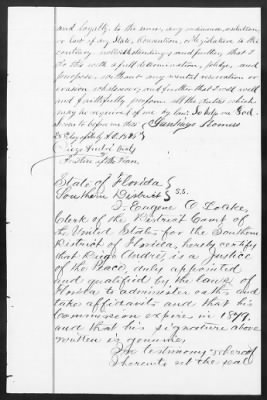 and loyalty to the same, any ordinance, resolution
or law of any State, Convention, or Legislature to the
contrary notwithstanding; and further, that I
do this with a full determination, pledge, and
purpose, without any mental reservation or
evasion whatsoever; and further that I will well
and faithfully perform all the duties which
may be required of me by law. So help me God.
Sworn to before me this Santiago
day of July A.D. 189
Diego
Justice of the Peace
State of Florida }
Southern District } S.S.
I, Eugene O. Locke,
Clerk of the District Court of
the United States for the Southern
District of Florida, hereby certify
that Diego is a Justice
of the Peace, duly appointed
and qualified by the laws of
Florida to administer oaths and
take affidavits and that his
Commission expires in 1899.
and that his signature above
written is genuine.
In testimony whereof
I hereunto set the seal